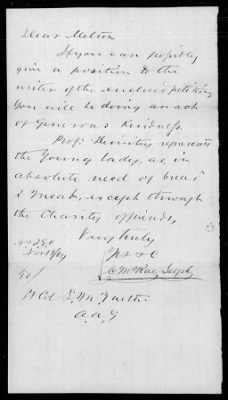 Dear Melton
If you can possibly
give a position to the
writer of the enclosed petition
You will be doing an act
of Generous Kindness.
Prof: represents
the Young lady, as, in
absolute need of bread
& meat, except through
the Charity of friends,
Very truly
Yrs &c
McRae Selph
Lt Col
A.A.G